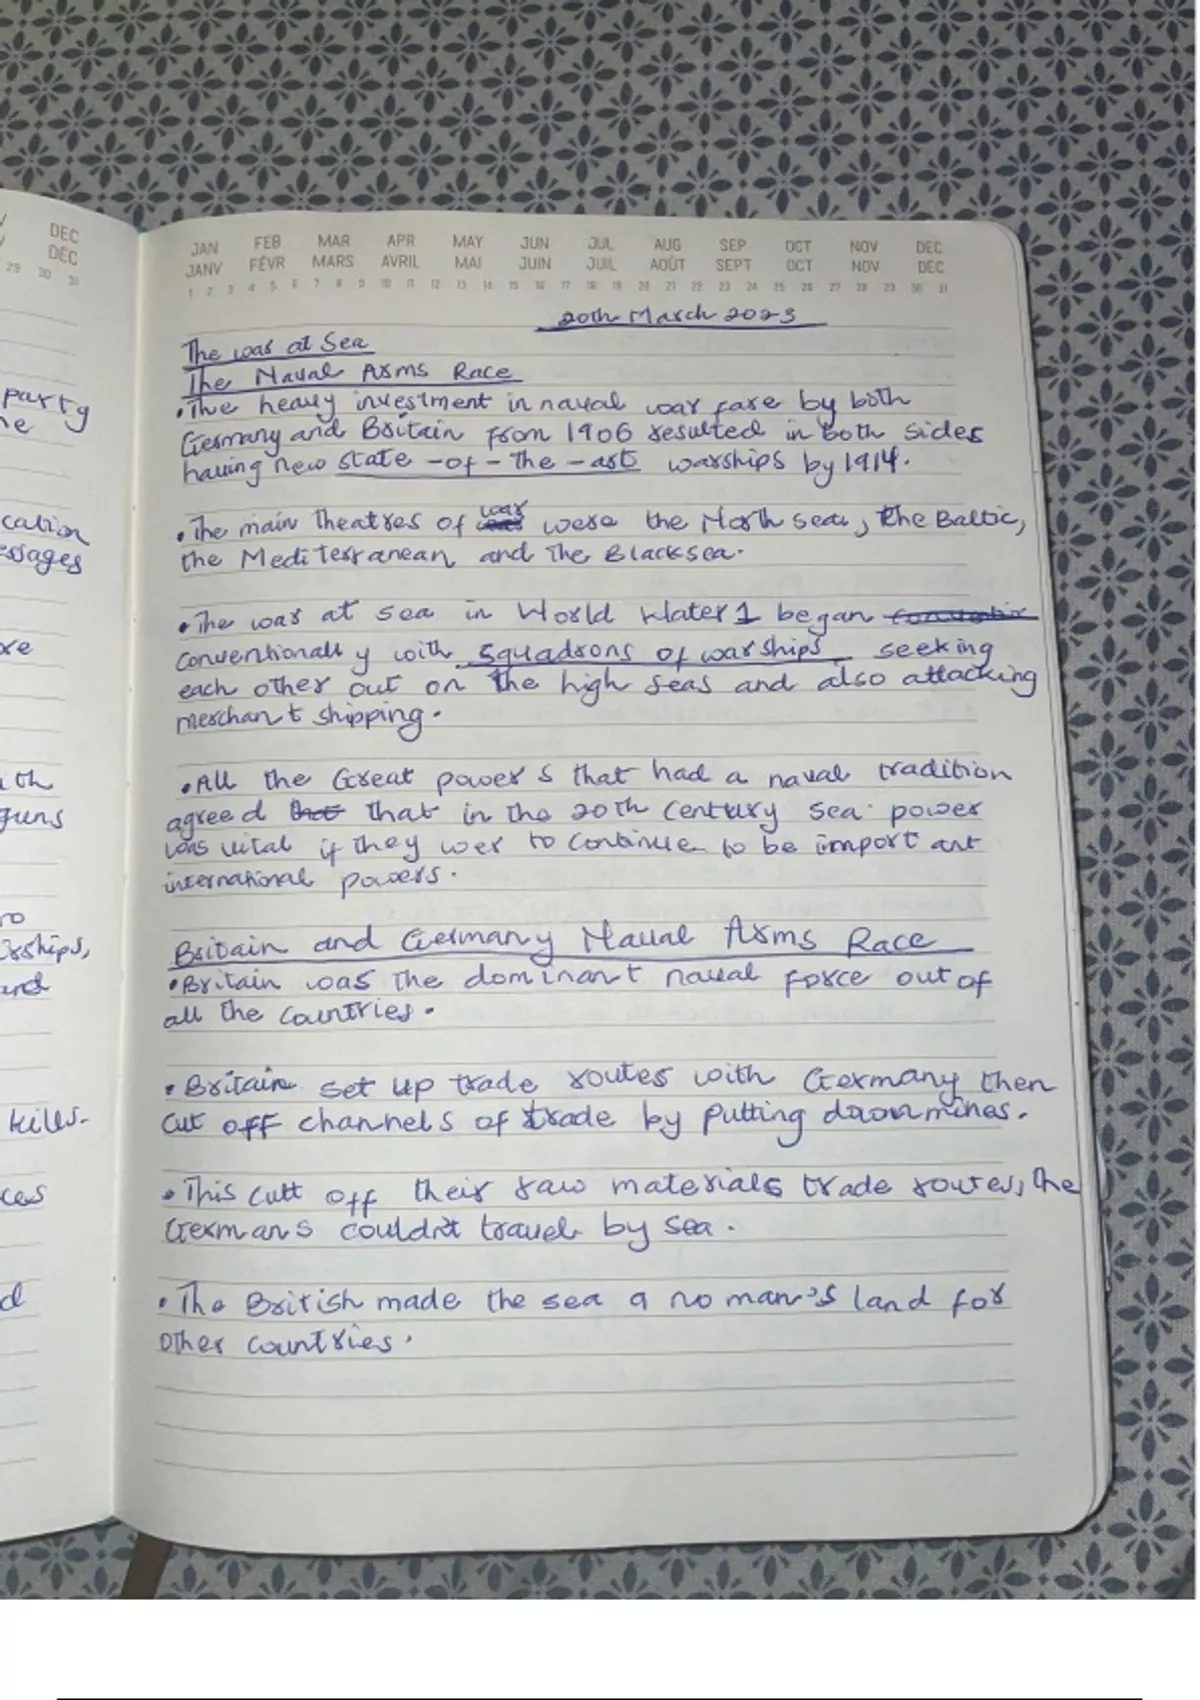 DEC
DÉC
29 30 31
party
cation
essages
kills.
JAN FEB MAR APR MAY JUN JUL AUG SEP OCT NOV DEC
JANV FÉVR MARS AVRIL MAI JUIN JUIL AOÛT SEPT OCT NOV DÉC
1 2 3 4 5 6 7 8 9 10 11 12 13 14 15 16 17 18 19 20 21 22 23 24 25 26 27 28 29 30 31
20th March 2023
The war at Sea
The Naval Arms Race
•The heavy investment in naval war fare by both
Germany and Britain from 1906 resulted in both sides
having new state-of-the-art warships by 1914.
•The main Theatres of war were the North sea, the Baltic,
the Mediterranean and The Blacksea.
•The war at sea in World Water 1 began
conventionally with squadrons of warships seeking
each other out on the high seas and also attacking
merchant shipping.
•All the Great powers that had a naval tradition
agreed that in the 20th century sea power
was vital if they wer to continue to be important
international powers.
Britain and Germany Naval Arms Race
•Britain was the dominant naval force out of
all the countries.
•Britain set up trade routes with Germany then
cut off channels of trade by putting down mines.
•This cutt off their raw materials trade routes, the
Germans couldn't travel by sea.
•The British made the sea a no man's land for
other countries.